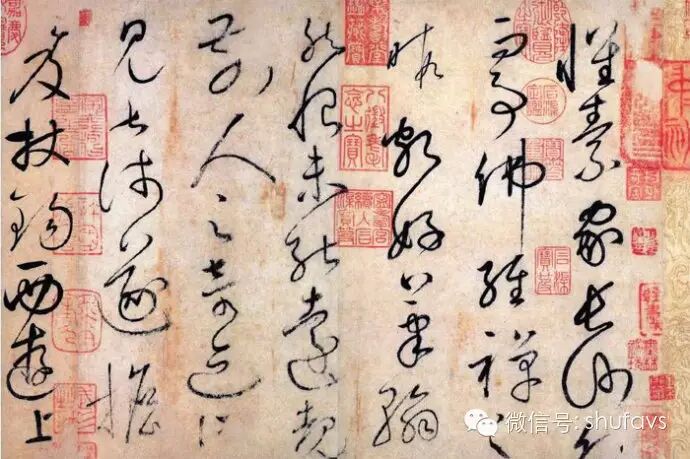 懷素家長沙幼
而事佛經禪之
暇頗好筆翰
然恨未能遠覩
前人之奇迹所
見甚淺遂擔
笈杖錫西遊上
微信号: shufavs